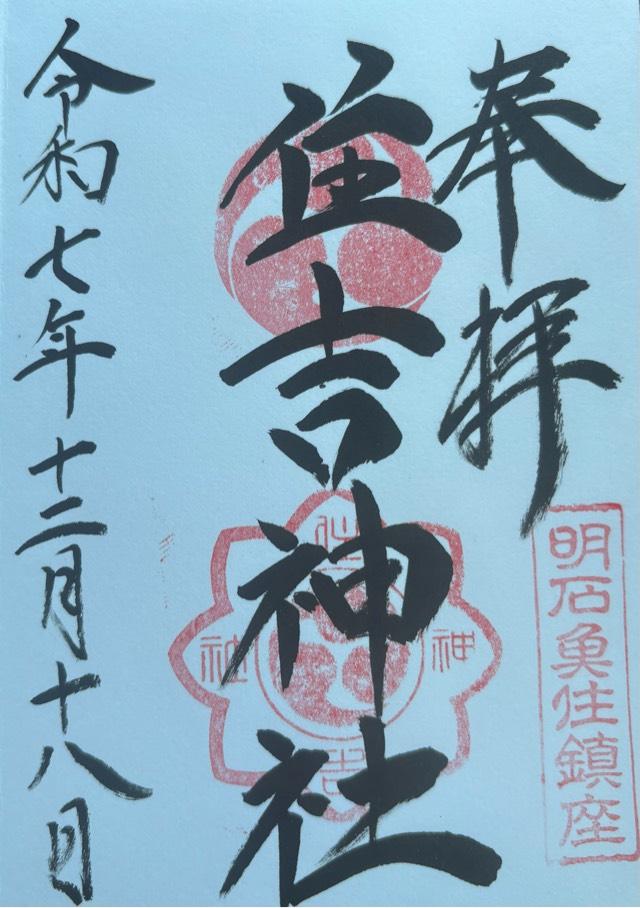 奉拝
明石魚住鎮座
住吉神社
住
吉
神
社
令和七年十二月十八日